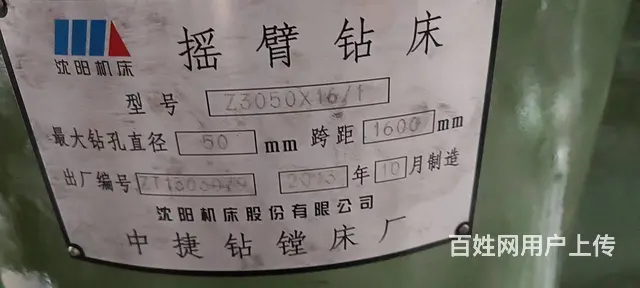 沈阳机床
摇臂钻床
型号 Z3050X16/1
最大钻孔直径 50 mm 跨距 1600 mm
出厂编号 年 10 月制造
沈阳机床股份有限公司
中捷钻镗床厂
百姓网用户上传